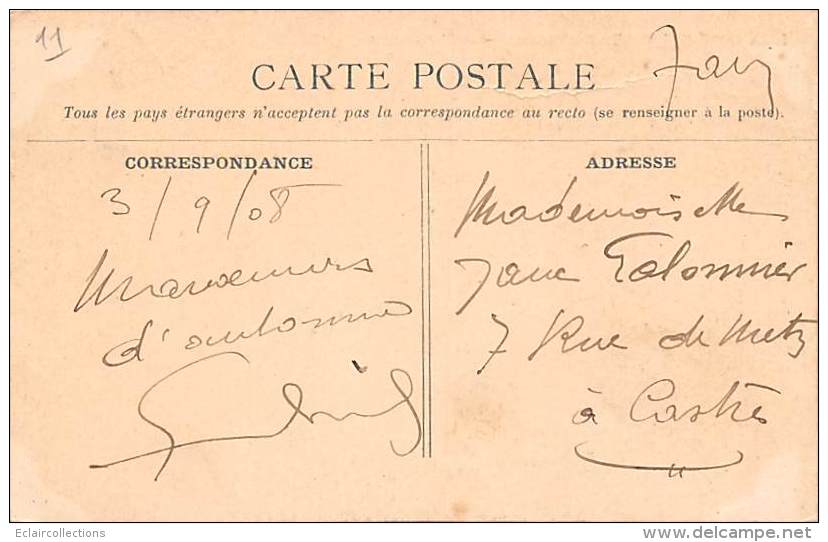 11
Tarn
CARTE POSTALE
Tous les pays étrangers n'acceptent pas la correspondance au recto (se renseigner à la poste).
CORRESPONDANCE
3/9/08
Manoeuvres
d'automne
Gabriel
ADRESSE
Mademoiselle
Jane
7 Rue de Metz
à Castres
Eclaircollections
www.delcampe.net